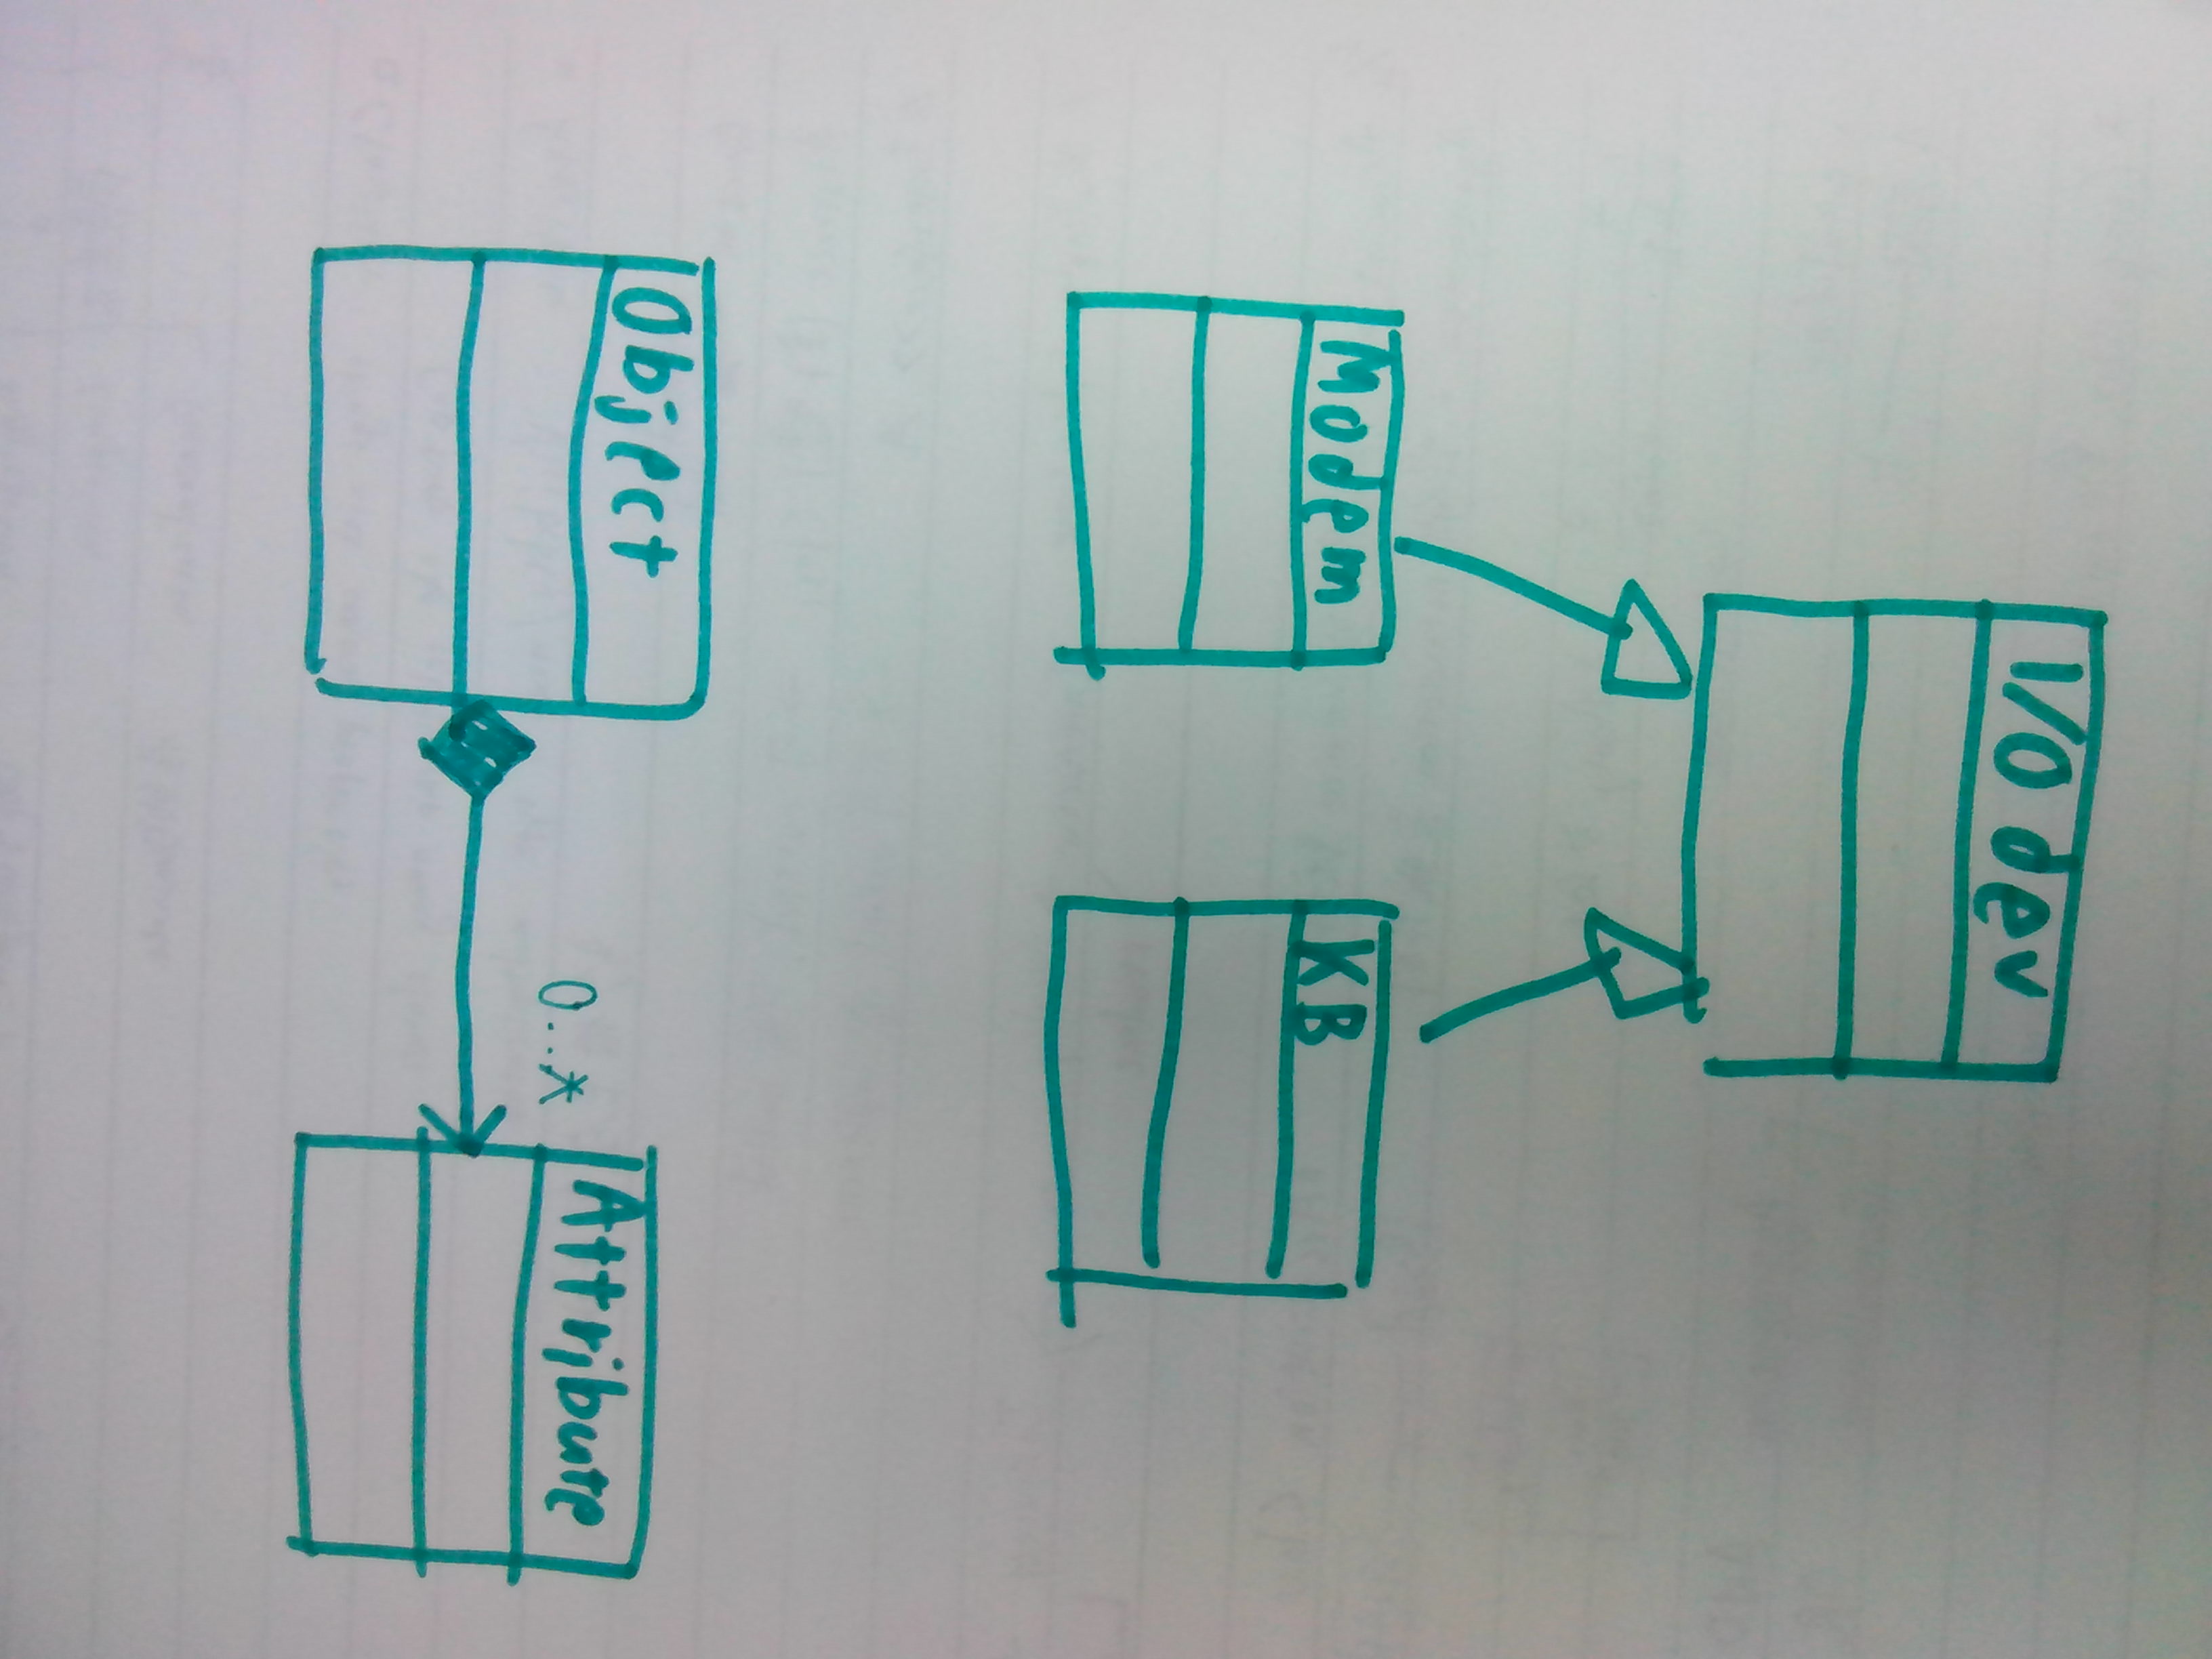 I/O dev
Modem
KB
Object
0..*
Attribute